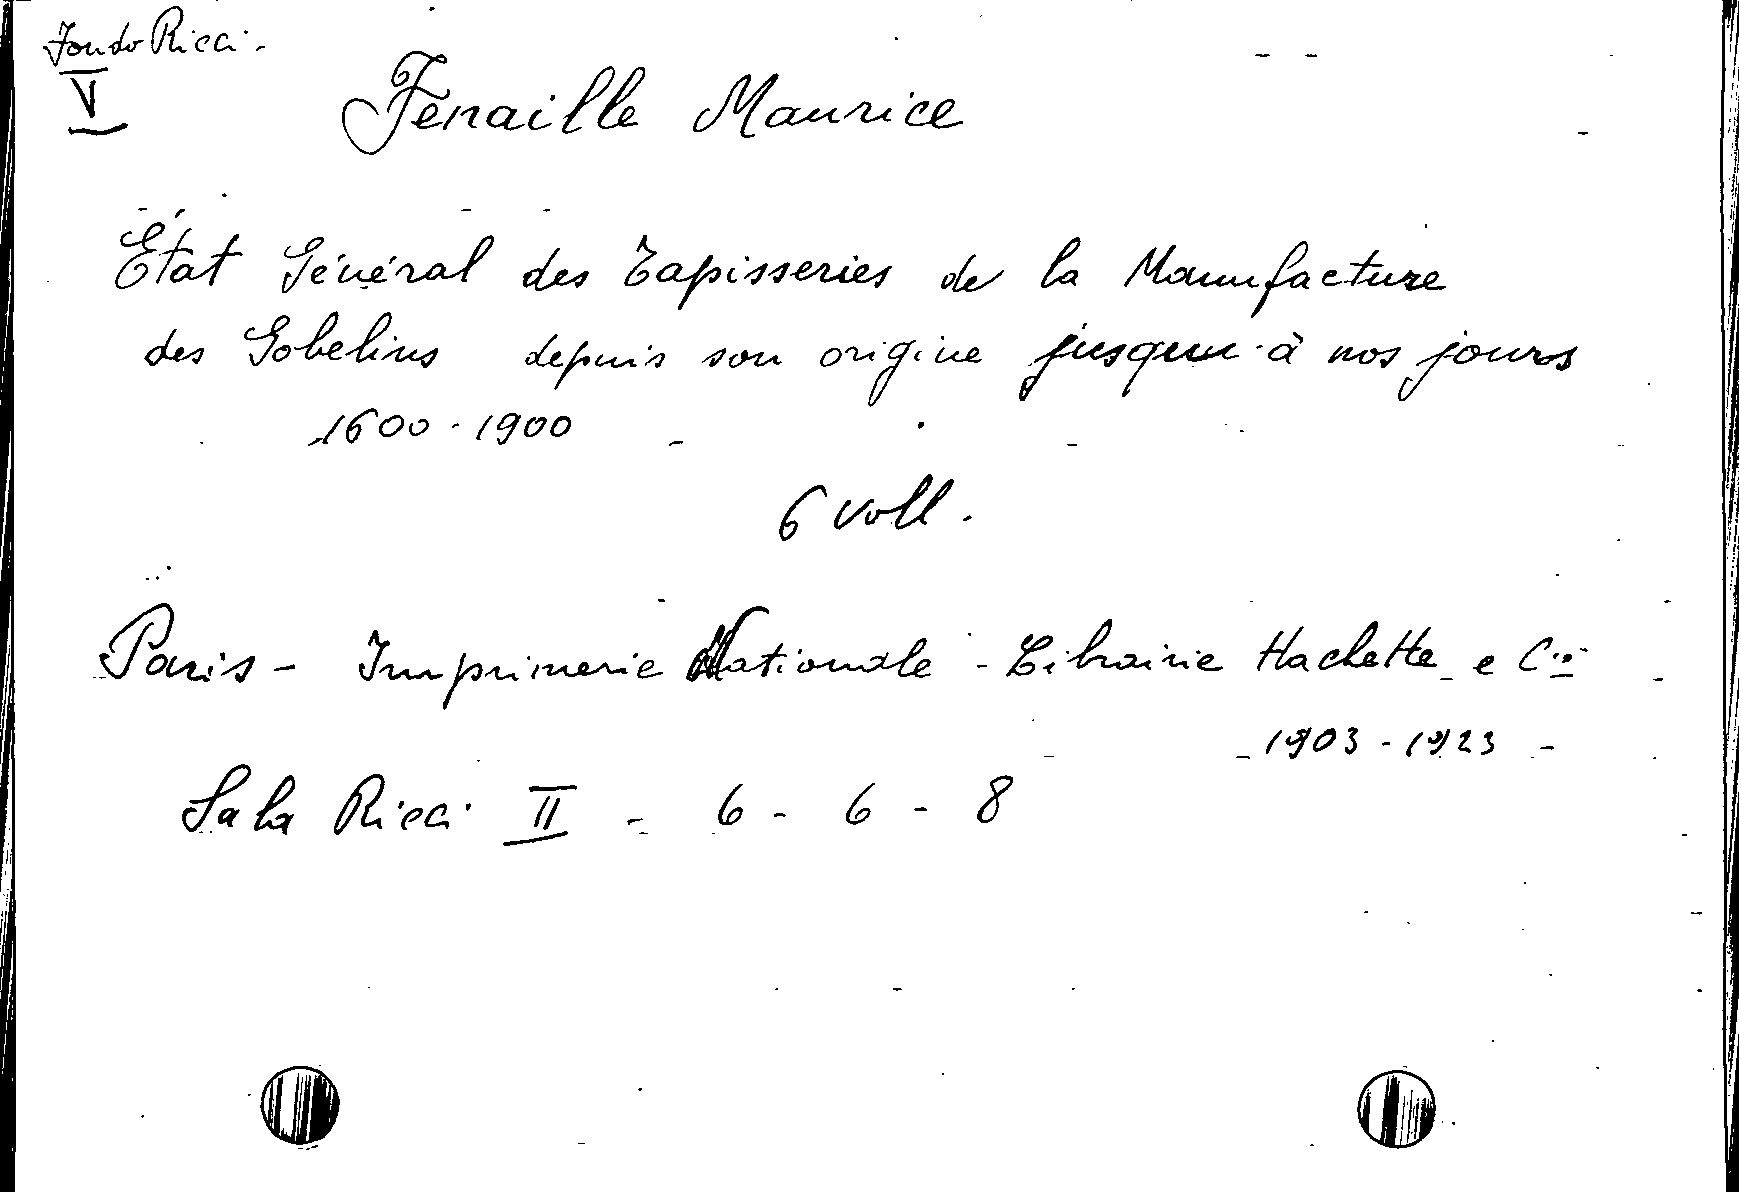 Fondo Ricci.
V
Fenaille Maurice
État Général des Tapisseries de la Manufacture
des Gobelins depuis son origine jusqu'à nos jours
1600 - 1900
6 voll.
Paris - Imprimerie Nationale - Librairie Hachette e C.ie
1903 - 1923
Sala Ricci II - 6 - 6 - 8